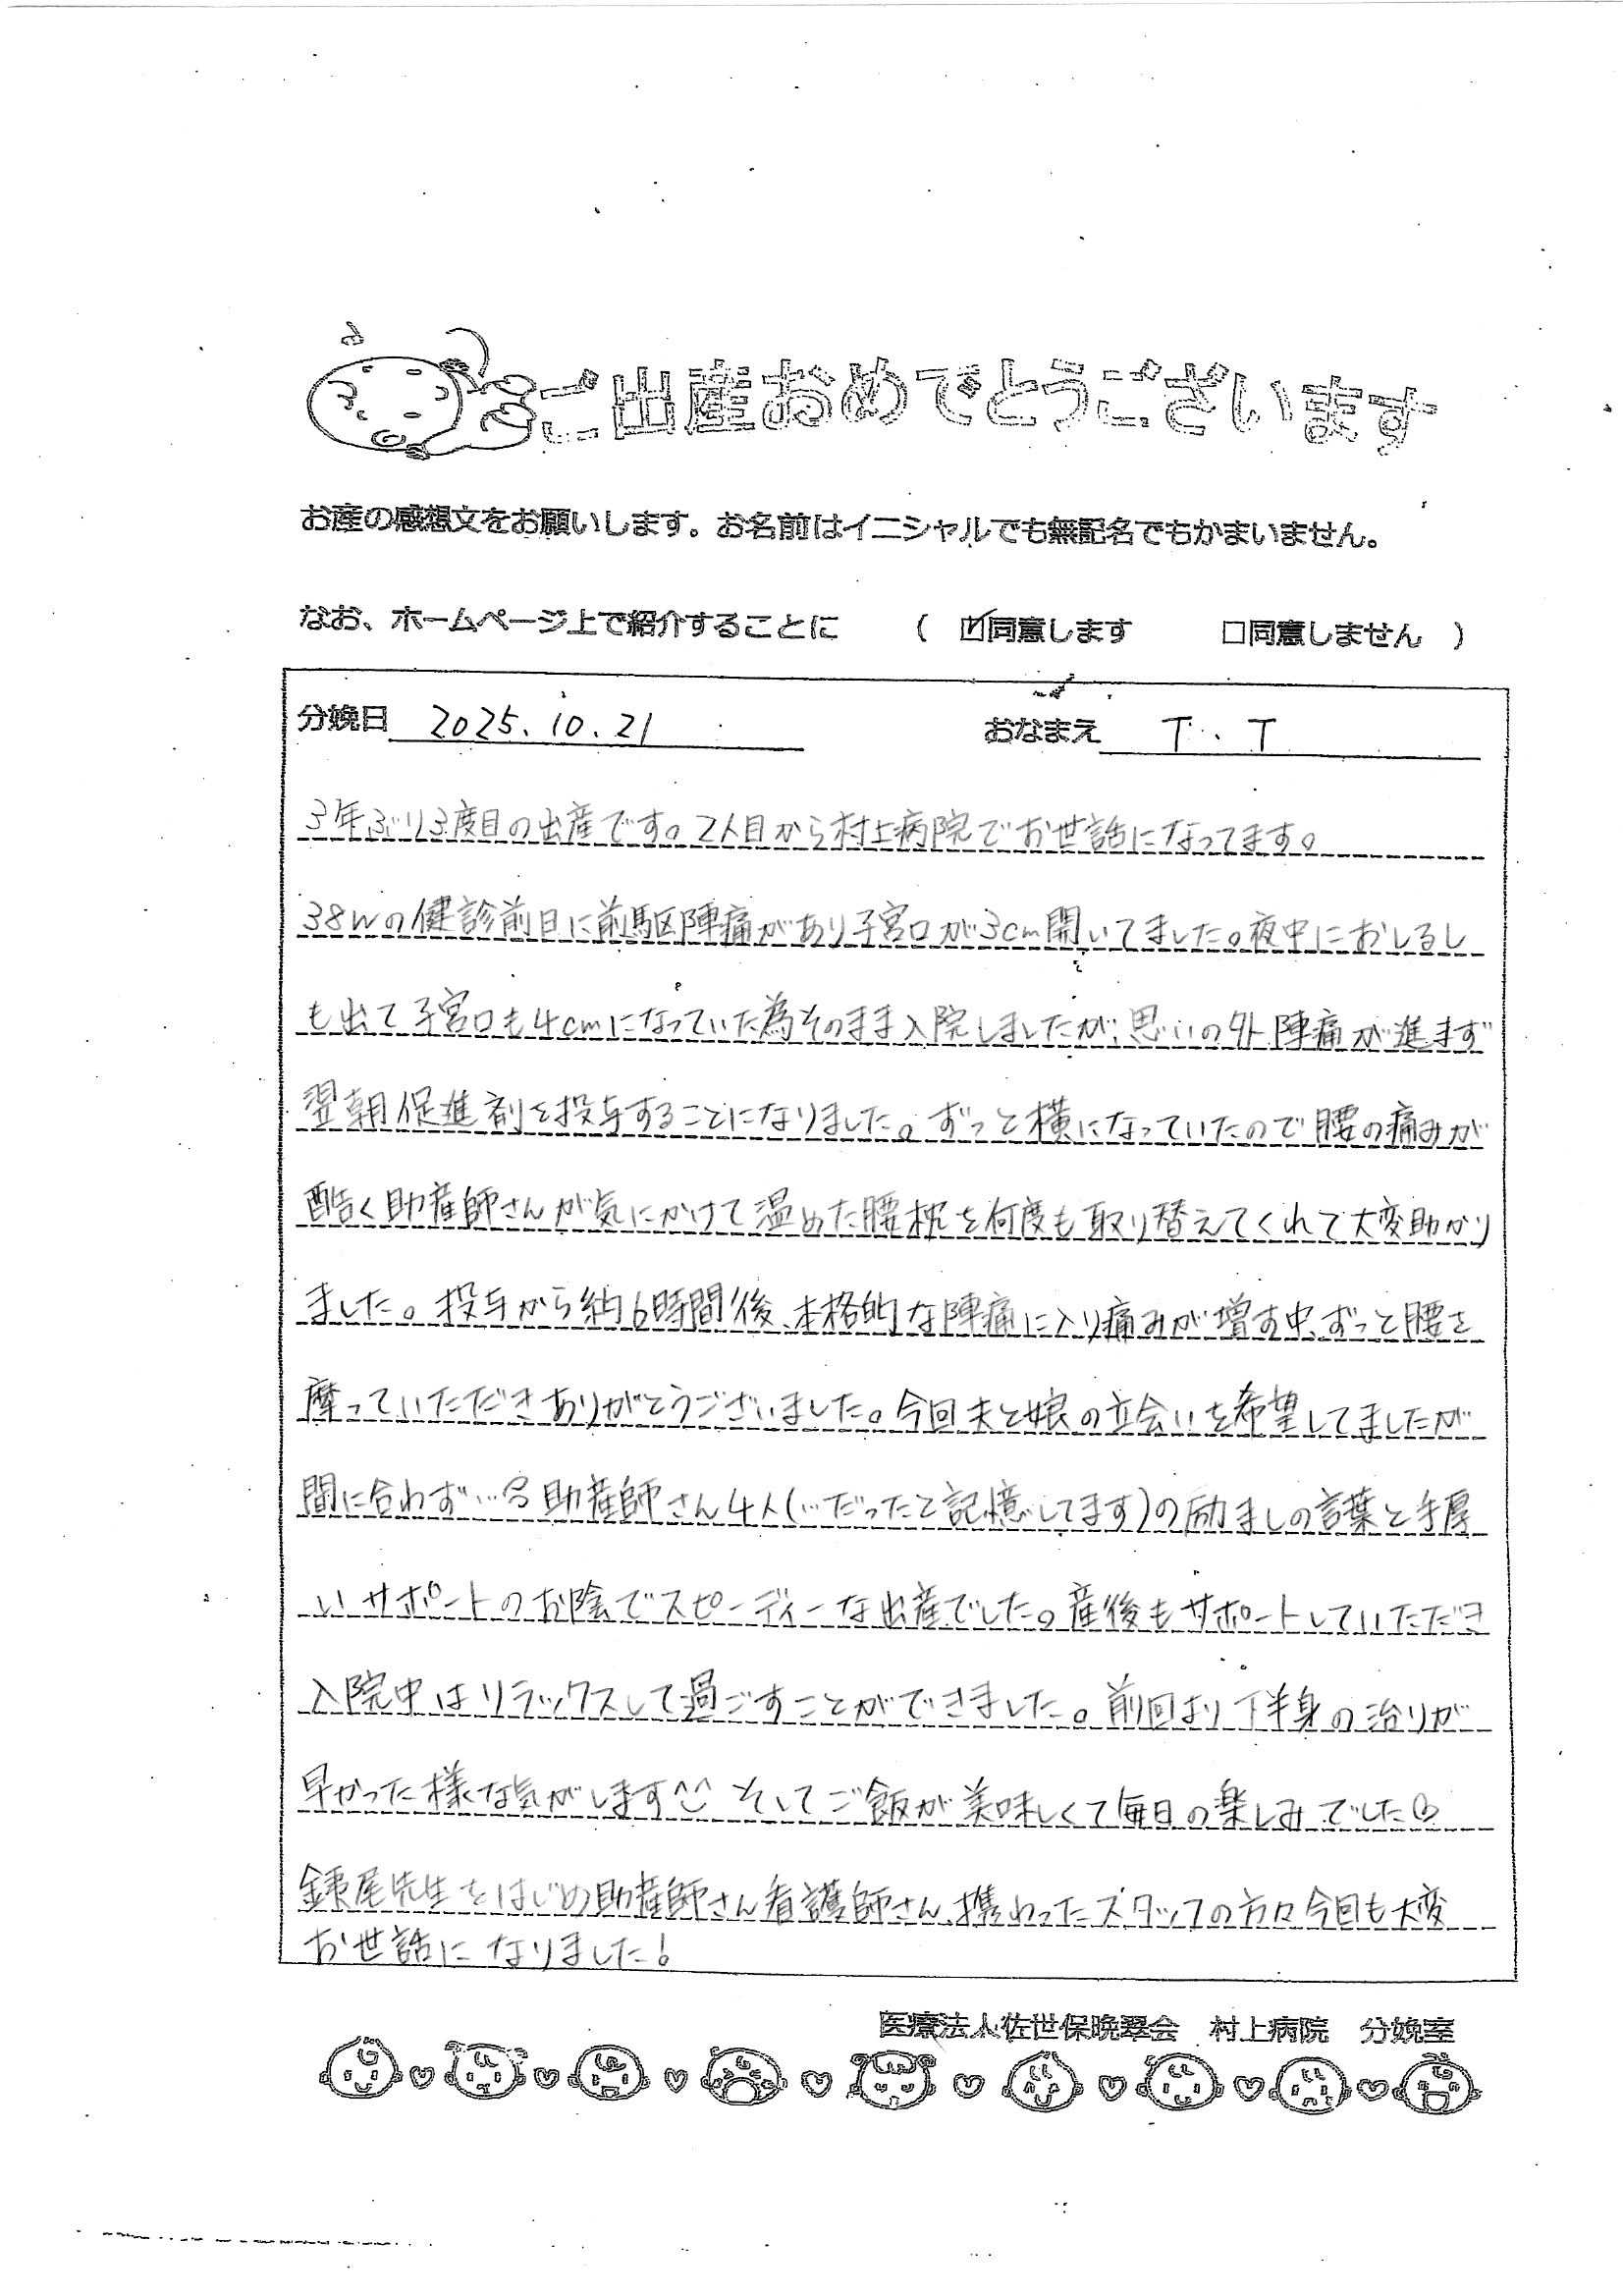 ご出産おめでとうございます
お産の感想文をお願いします。お名前はイニシャルでも無記名でもかまいません。
なお、ホームページ上で紹介することに ( ☑同意します □同意しません )
分娩日 2025.10.21 おなまえ T.T
3年ぶり3度目の出産です。2人目から村上病院でお世話になってます。
38wの健診前日に前駆陣痛があり子宮口が3cm開いてました。夜中におしるし
も出て子宮口も4cmになっていた為そのまま入院しましたが、思いの外陣痛が進まず
翌朝促進剤を投与することになりました。ずっと横になっていたので腰の痛みが
酷く助産師さんが気にかけて温めた腰枕を何度も取り替えてくれて大変助かり
ました。投与から約6時間後、本格的な陣痛に入り痛みが増す中、ずっと腰を
摩っていただきありがとうございました。今回夫と娘の立会いを希望してましたが
間に合わず… 助産師さん4人(…だったと記憶してます)の励ましの言葉と手厚
いサポートのお陰でスピーディーな出産でした。産後もサポートしていただき
入院中はリラックスして過ごすことができました。前回より下半身の治りが
早かった様な気がします^^ そしてご飯が美味しくて毎日の楽しみでした
尾先生をはじめ助産師さん看護師さん、携わったスタッフの方々今回も大変
お世話になりました!
医療法人佐世保晩翠会 村上病院 分娩室